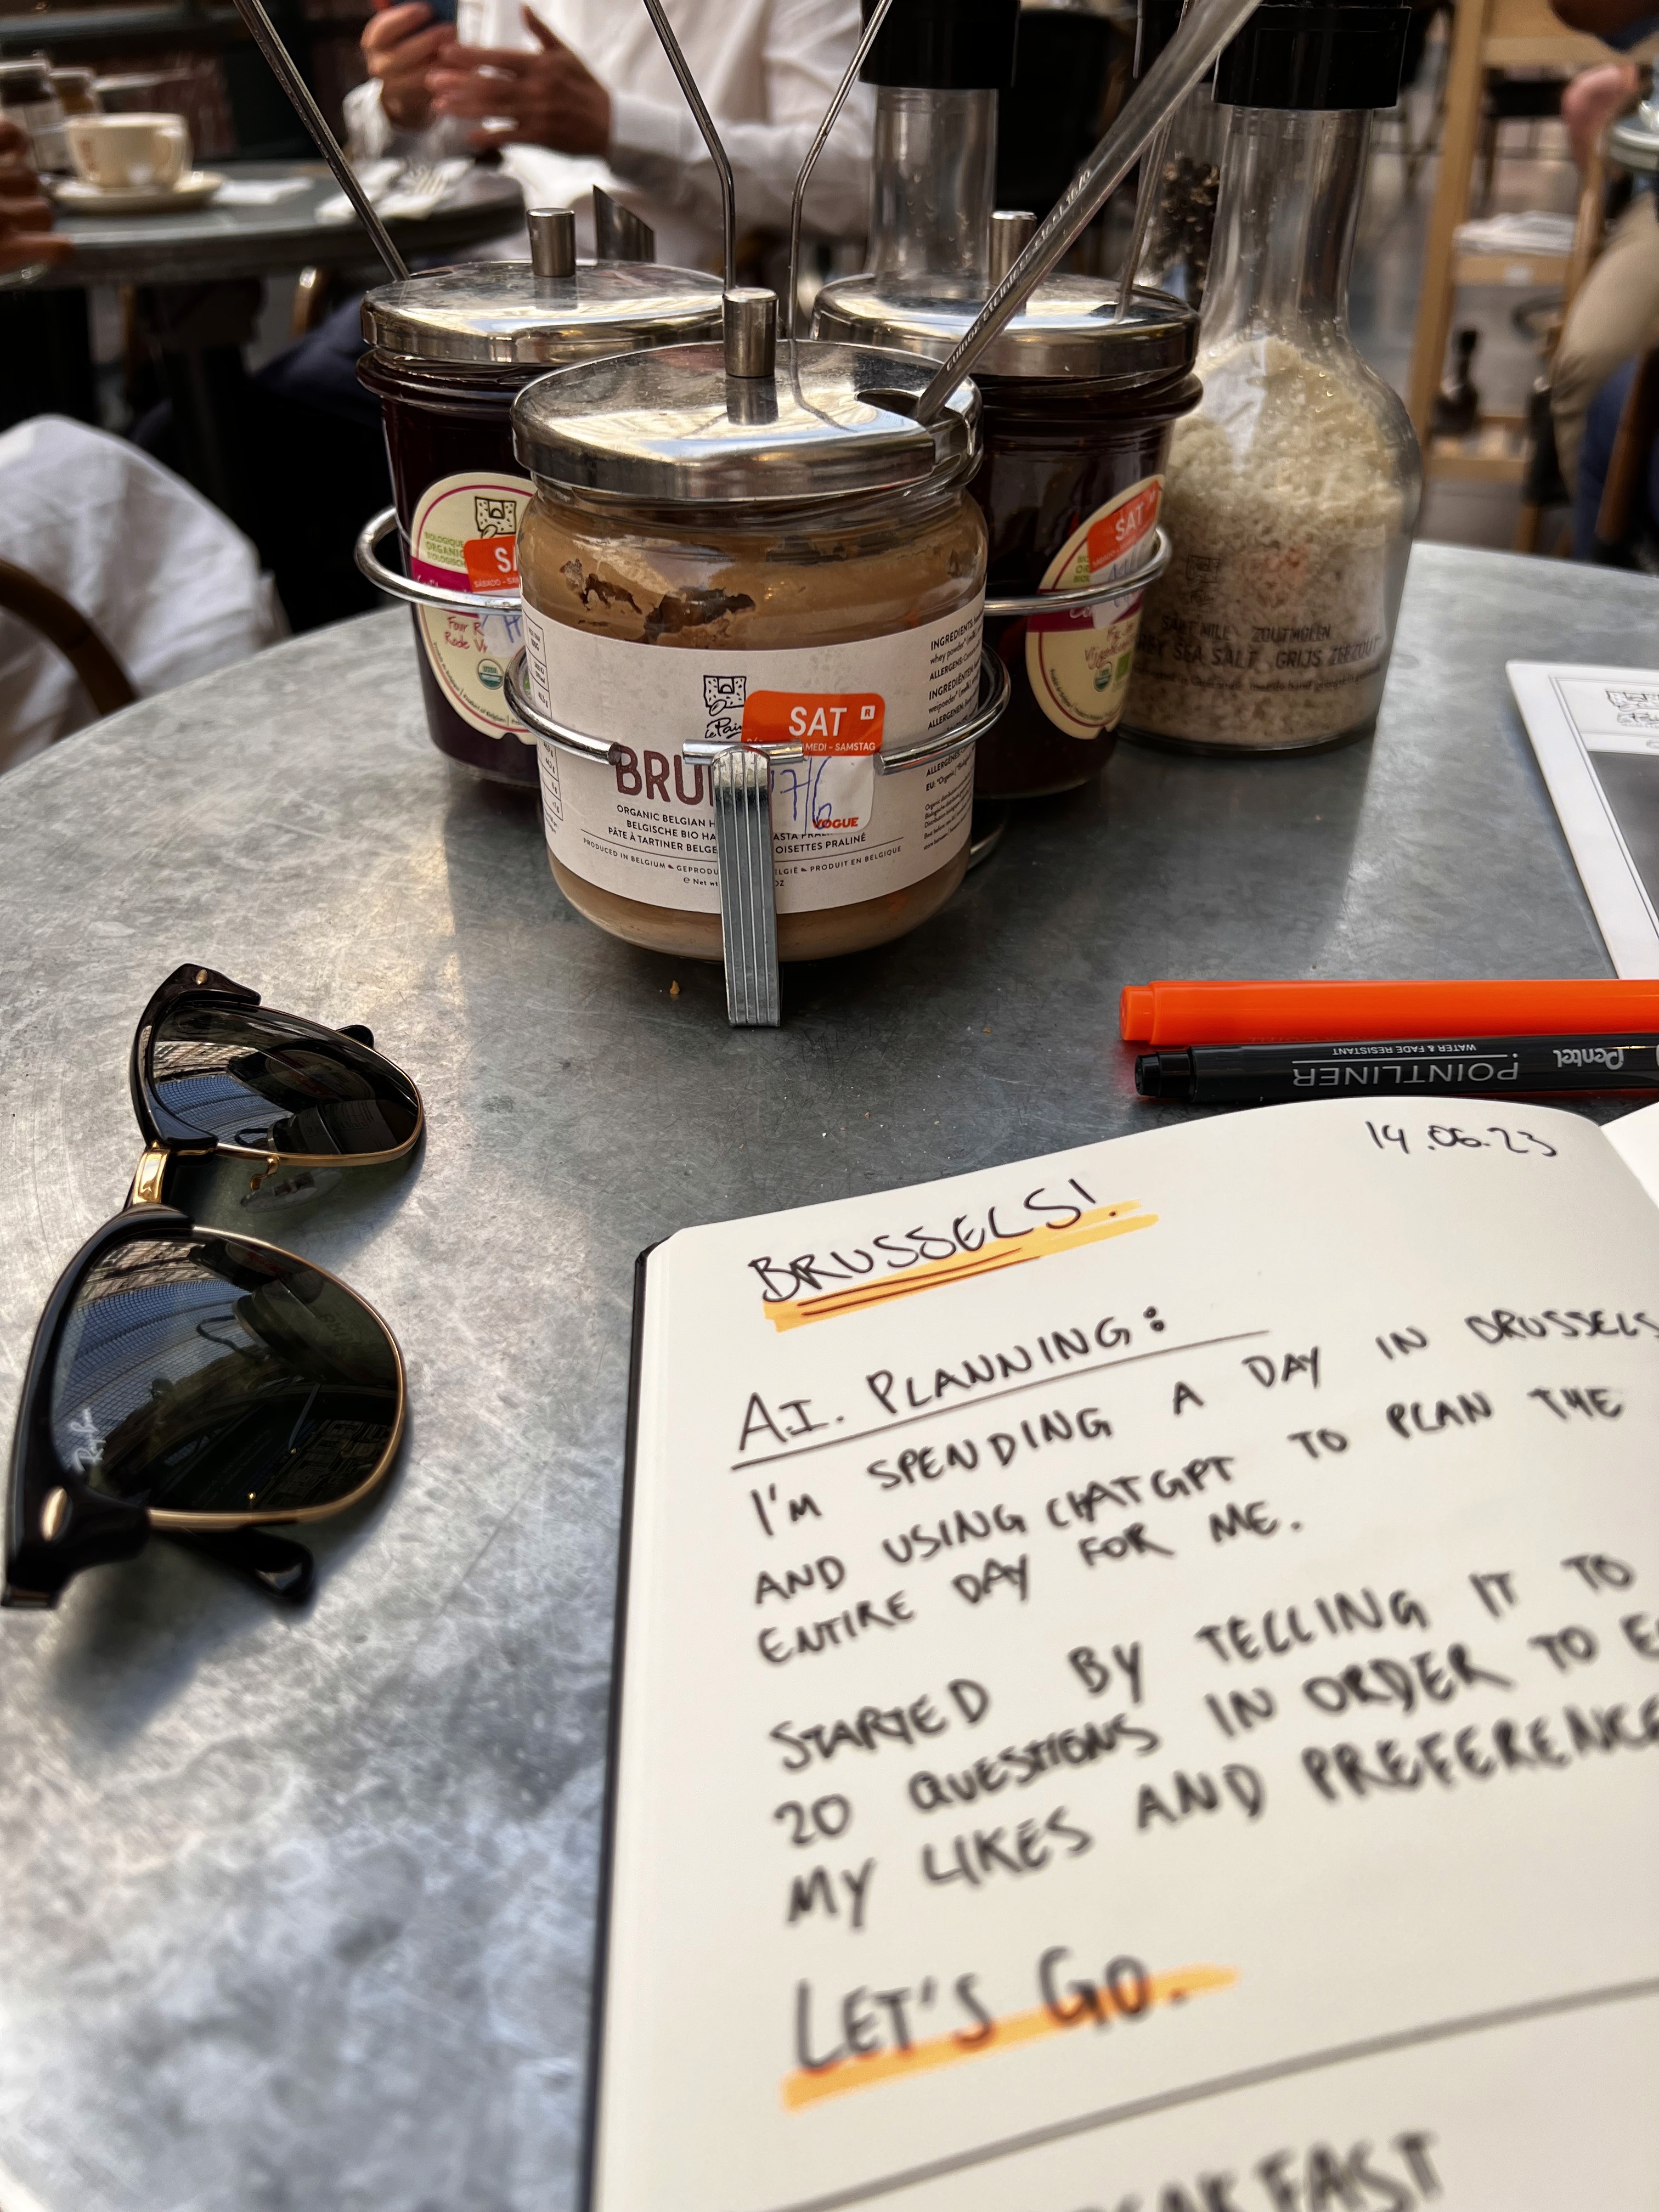 SAT
SAT
BIOLOGIQUE
ORGANIC
Rode
SAT R
MEDI - SAMSTAG
7/6
VOGUE
Le Pain
BRU
ORGANIC BELGIAN H
BELGISCHE BIO HA ASTA PRA
PÂTE À TARTINER BELGE OISETTES PRALINÉ
PRODUCED IN BELGIUM GEPRODU ELGIË PRODUIT EN BELGIQUE
e Net w OZ
INGREDIENTS:
whey powder
ALLERGENS:
INGREDIËNTEN:
weipoeder
SALT MILL ZOUTMOLEN
GREY SEA SALT GRIJS ZEEZOUT
Pentel
POINTLINER
WATER & FADE RESISTANT
Ray-Ban
14.06.23
BRUSSELS!
A.I. PLANNING:
I'M SPENDING A DAY IN BRUSSELS
AND USING CHATGPT TO PLAN THE
ENTIRE DAY FOR ME.
STARTED BY TELLING IT TO
20 QUESTIONS IN ORDER TO E
MY LIKES AND PREFERENCE
LET'S GO.
EAKFAST